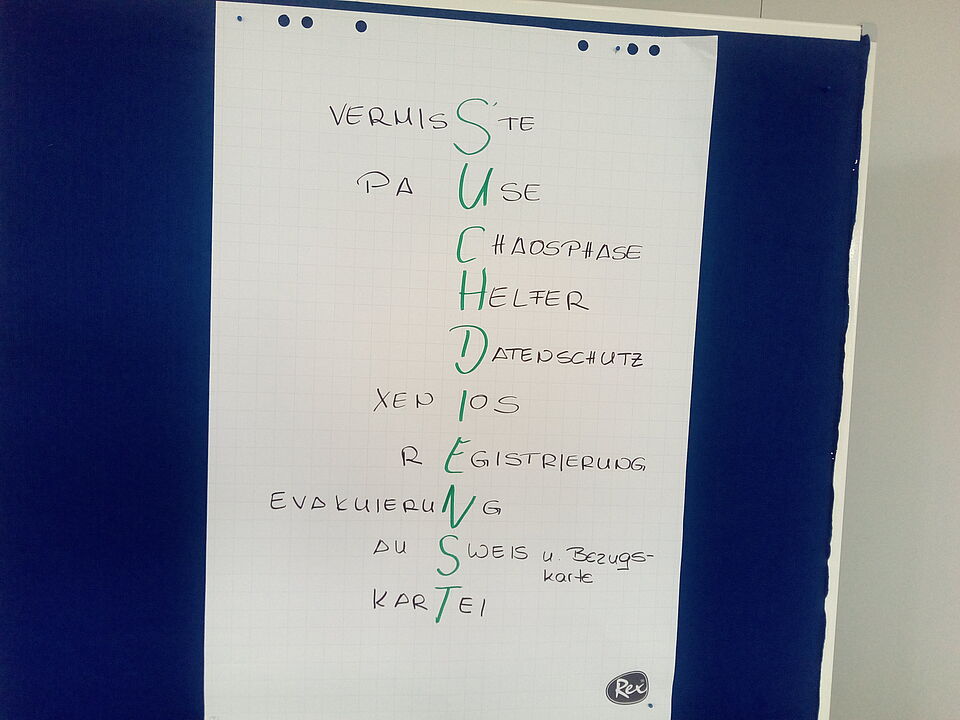 VERMISSTE
PAUSE
CHAOSPHASE
HELFER
DATENSCHUTZ
XENIOS
REGISTRIERUNG
EVAKUIERUNG
AUSWEIS u. Bezugs-
karte
KARTEI
Rex